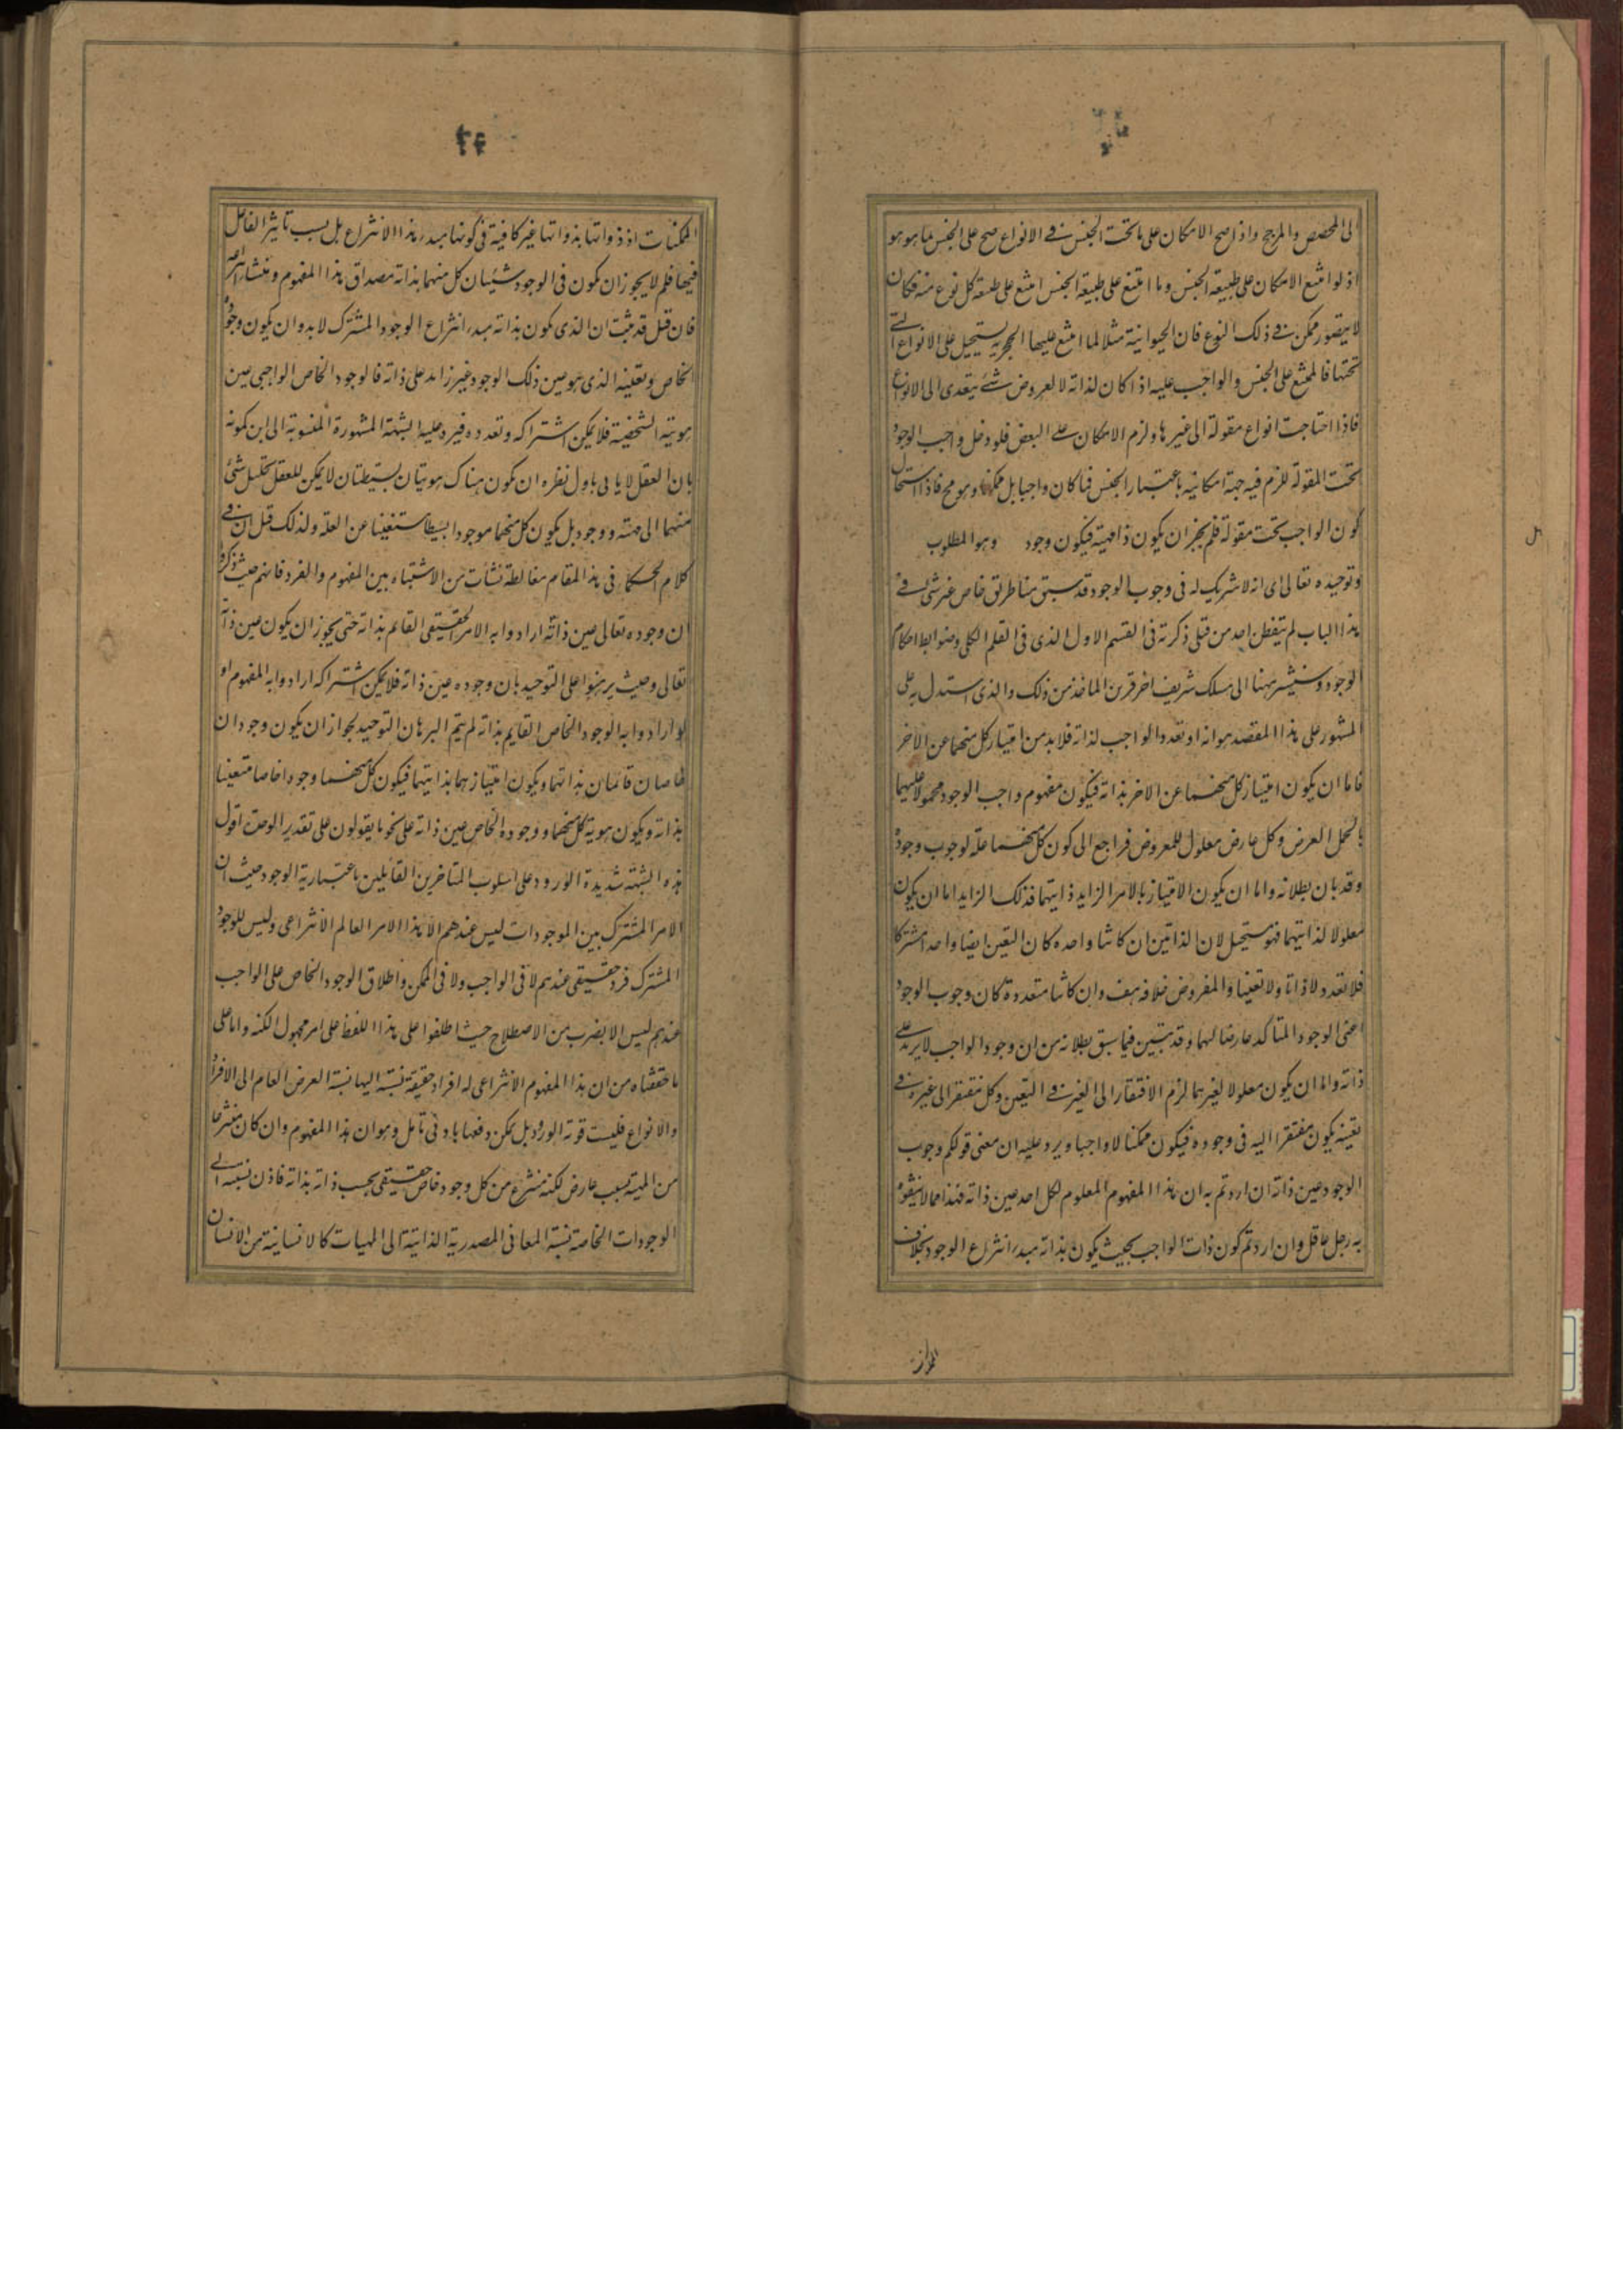 الى المخصص والمرجح واذا صح الامكان على ما تحت الجنس فى الانواع صح على الجنس بما هو هو
اذ لو امتنع الامكان على طبيعة الجنس وما امتنع على طبيعة الجنس امتنع على طبيعة كل نوع منه فكان
لا يتصور ممكن فى ذلك النوع فان الحيوانية مثلا لما امتنع عليها الحجرية يستحيل على الانواع التى
تحتها فالممتنع على الجنس والواجب عليه اذا كان لذاته لا لعروض شئ يتعدى الى الانواع
فاذا احتاجت انواع مقولة الى غيرها ولزم الامكان على البعض فلو دخل واجب الوجود
تحت المقولة للزم فيه جهة امكانيه باعتبار الجنس فما كان واجبا بل ممكنا وهو مح فاذا استحال
كون الواجب تحت مقولة فلم يجز ان يكون ذا مهية فيكون وجود وهو المطلوب
وتوحيده تعالى اى انه لا شريك له فى وجوب الوجود قد سبق منا طريق خاص عرشى فى
هذا الباب لم يتفطن احد من قبلى ذكرته فى القسم الاول الذى فى العلم الكلى وضوابط احكام
الوجود وسنشير ههنا الى مسلك شريف اخر قريب الماخذ من ذلك والذى استدل به على
المشهور على هذا المقصد هو انه لو تعدد الواجب لذاته فلا بد من امتياز كل منهما عن الاخر
فاما ان يكون امتياز كل منهما عن الاخر بذاته فيكون مفهوم واجب الوجود محمولا عليهما
بالحمل العرضى وكل عارض معلول للمعروض فراجع الى كون كل منهما علة لوجوب وجوده
وقد بان بطلانه واما ان يكون الامتياز بالامر الزايد ذاتيهما فذلك الزايد اما ان يكون
معلولا لذاتيهما فهو مستحيل لان الذاتين ان كانتا واحده كان التعين ايضا واحدا مشتركا
فلا تعدد لا ذاتا ولا تعينا والمفروض خلافه هف وان كانتا متعددة كان وجوب الوجود
اعنى الوجود المتاكد عارضا لهما وقد تبين فيما سبق بطلانه من ان وجود الواجب لا يزيد على
ذاته واما ان يكون معلولا لغيرهما لزم الافتقار الى الغير فى التعين وكل مفتقر الى غيره فى
تعينه يكون مفتقرا اليه فى وجوده فيكون ممكنا لا واجبا ويرد عليه ان معنى قولكم وجوب
الوجود عين ذاته ان اردتم به ان هذا المفهوم المعلوم لكل احد عين ذاته فهذا مما لا يتفوه
به رجل عاقل وان اردتم كون ذات الواجب بحيث يكون بذاته مبدء انتزاع الوجود بخلاف
الممكنات اذ ذواتها بذواتها غير كافية فى كونها مبدء هذا الانتزاع بل بسبب تاثير الفاعل
فيها فلم لا يجوز ان يكون فى الوجود شيئان كل منهما بذاته مصداق هذا المفهوم ومنشا انتزاعه
فان قيل قد ثبت ان الذى يكون بذاته مبدء انتزاع الوجود المشترك لا بد وان يكون وجوده
الخاص وتعينه الذى هو عين ذلك الوجود غير زايد على ذاته فالوجود الخاص الواجبى عين
هويته الشخصية فلا يمكن اشتراكه وتعدده فيرد عليه الشبهة المشهورة المنسوبة الى ابن كمونه
بان العقل لا يابى باول نظره ان يكون هناك هويتان بسيطتان لا يمكن للعقل تحليل شئ
منهما الى مهية ووجود بل يكون كل منهما موجودا بسيطا مستغنيا عن العلة ولذلك قيل ان فى
كلام الحكما فى هذا المقام مغالطة نشات من الاشتباه بين المفهوم والفرد فانهم حيث ذكروا
ان وجوده تعالى عين ذاته ارادوا به الامر الحقيقى القايم بذاته حتى يجوز ان يكون عين ذاته
تعالى وحيث برهنوا على التوحيد بان وجوده عين ذاته فلا يمكن اشتراكه ارادوا به المفهوم او
لو ارادوا به الوجود الخاص القايم بذاته لم يتم البرهان التوحيد لجواز ان يكون وجودان
خاصان قائمان بذاتهما ويكون امتيازهما بذاتيهما فيكون كل منهما وجودا خاصا متعينا
بذاته ويكون هوية كل منهما ووجوده الخاص عين ذاته على نحو ما يقولون على تقدير الوحدة اقول
هذه الشبهة شديدة الورود على اسلوب المتاخرين القايلين باعتبارية الوجود حيث ان
الامر المشترك بين الموجودات ليس عندهم الا هذا الامر العام الانتزاعى وليس للوجود
المشترك فرد حقيقى عندهم لا فى الواجب ولا فى الممكن واطلاق الوجود الخاص على الواجب
عندهم ليس الا بضرب من الاصطلاح حيث اطلقوا على هذا اللفظ على امر مجهول الكنه واما على
ما حققناه من ان هذا المفهوم الانتزاعى له افراد حقيقة نسبته اليها نسبة العرض العام الى الافراد
والانواع فليست قوته الورود بل يمكن دفعها بادنى تامل وهو ان هذا المفهوم وان كان منتزعا
من المهية بسبب عارض لكنه منتزع من كل وجود خاص حقيقى بحسب ذاته بذاته فاذن نسبته الى
الوجودات الخاصة نسبة المعانى المصدرية الذاتية الى المهيات كالانسانية من الانسان